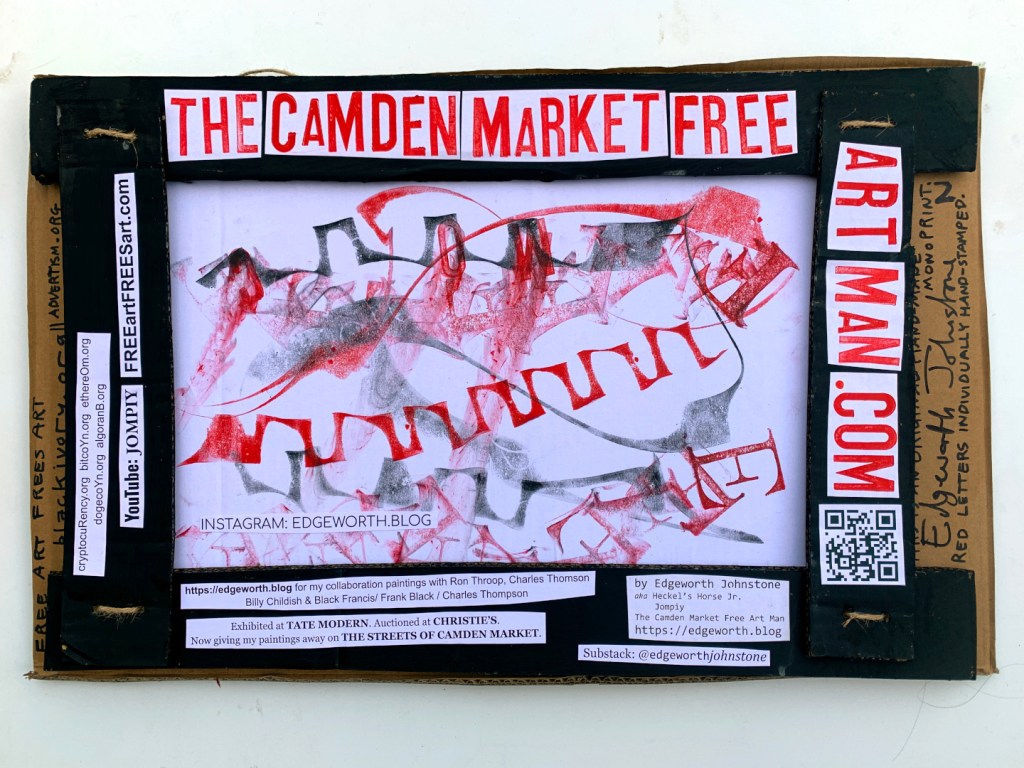 THE CAMDEN MARKET FREE
ART MAN.COM
FREE ART FREES ART
ADVERTISM.ORG
cryptocuRency.org bitcoYn.org ethereOm.org
dogecoYn.org algoranB.org
YouTube: JOMPIY FREEartFREESart.com
INSTAGRAM: EDGEWORTH.BLOG
https://edgeworth.blog for my collaboration paintings with Ron Throop, Charles Thomson
Billy Childish & Black Francis/ Frank Black / Charles Thompson
Exhibited at TATE MODERN. Auctioned at CHRISTIE'S.
Now giving my paintings away on THE STREETS OF CAMDEN MARKET.
by Edgeworth Johnstone
aka Heckel's Horse Jr.
Jompiy
The Camden Market Free Art Man
https://edgeworth.blog
Substack: @edgeworthjohnstone
MONOPRINT.
Edgeworth Johnstone
RED LETTERS INDIVIDUALLY HAND-STAMPED.